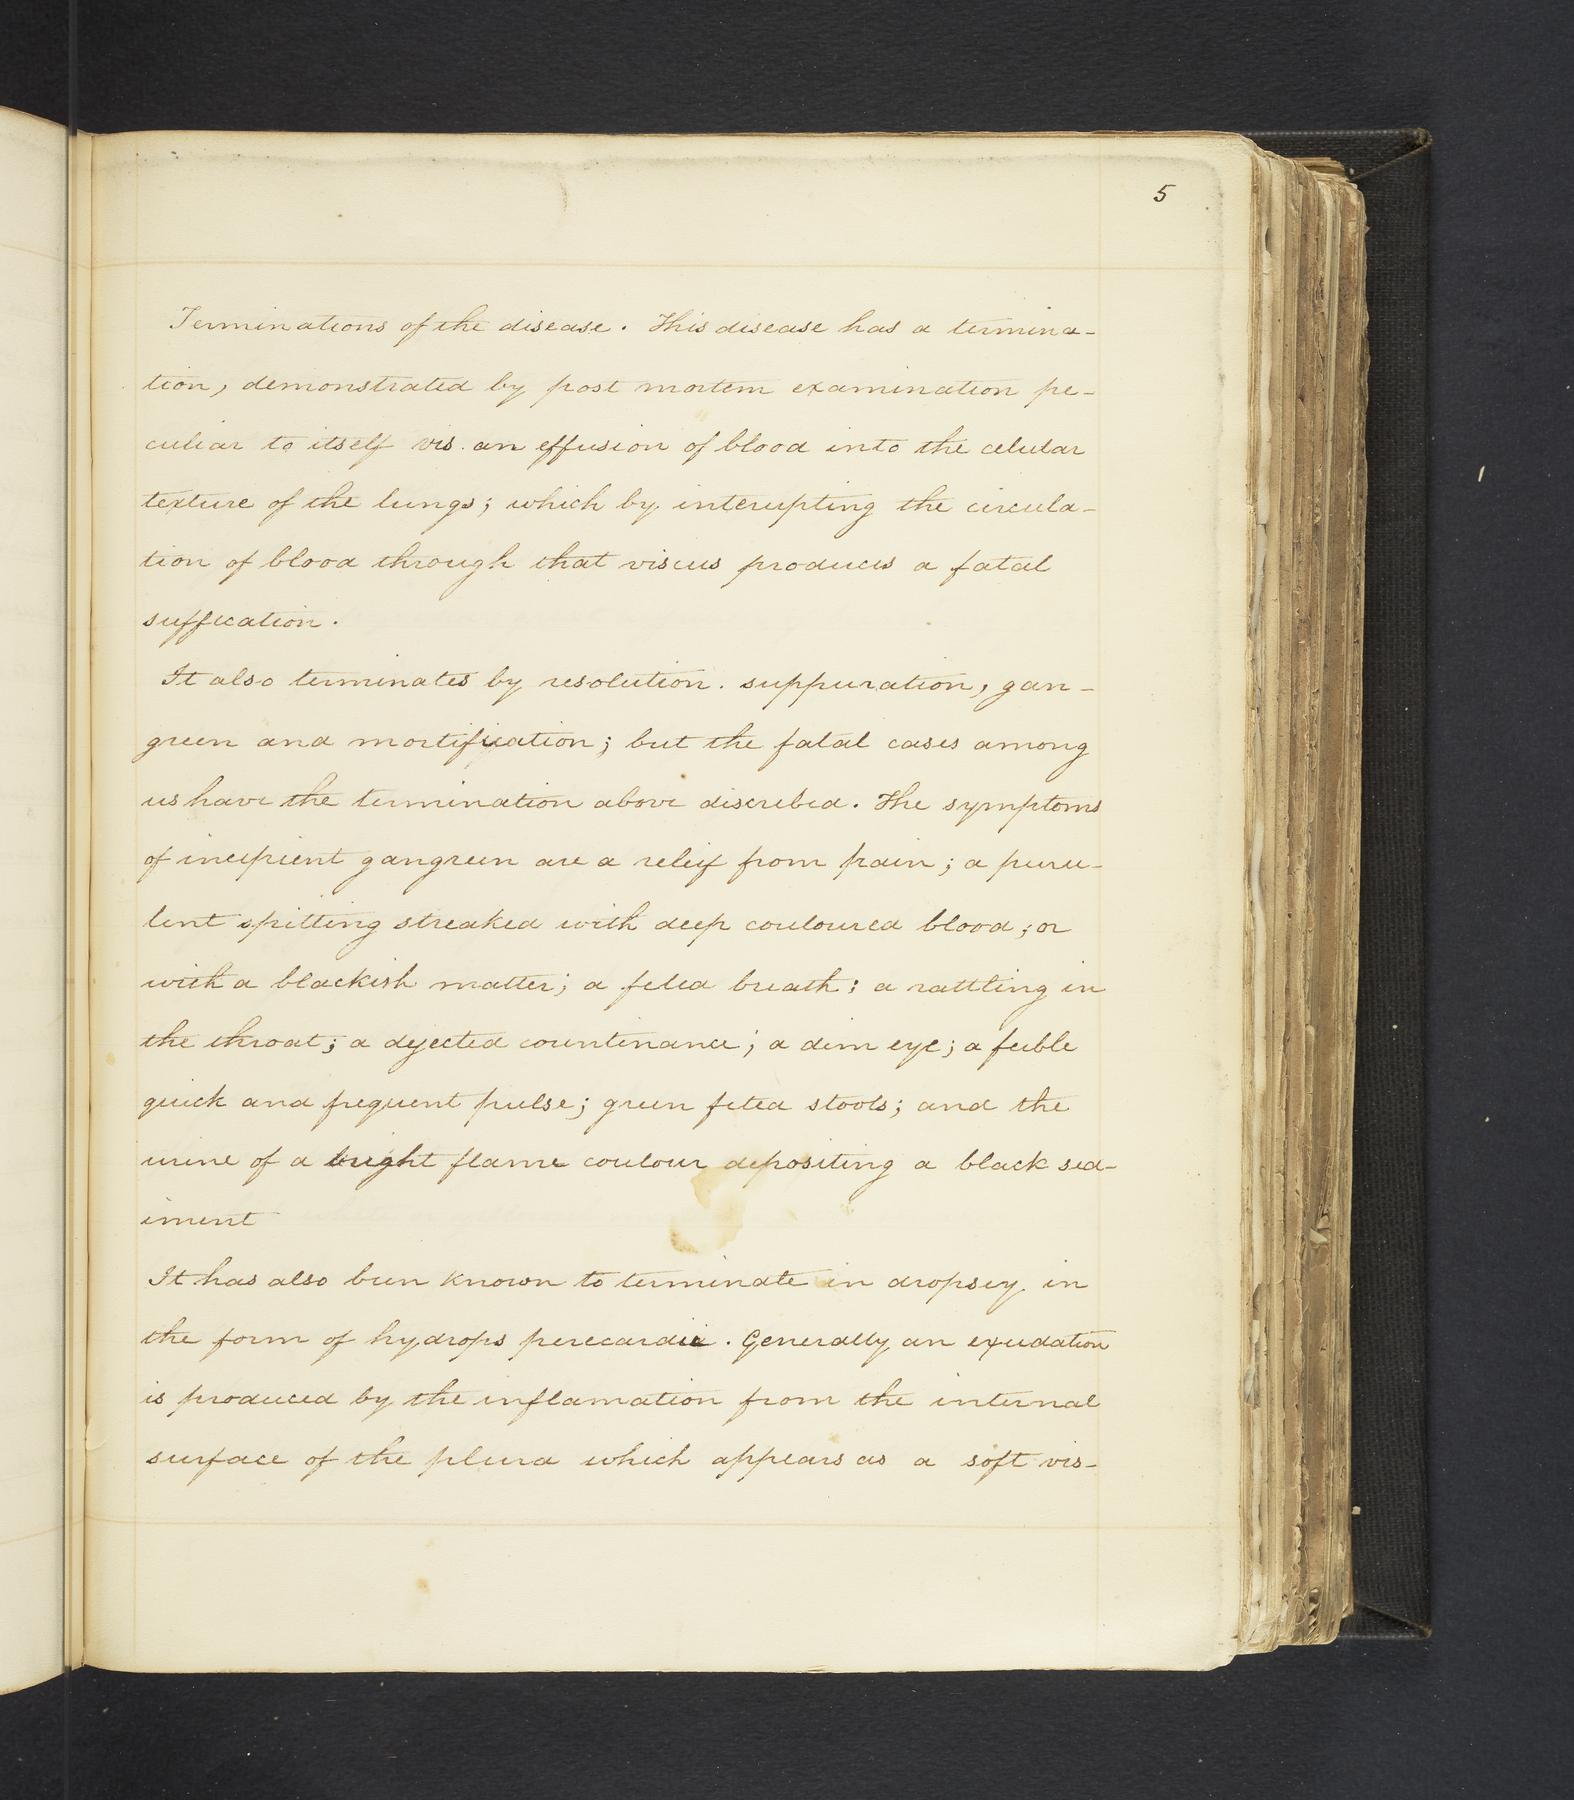 5
Terminations of the disease. This disease has a termina-
tion, demonstrated by post mortem examination pe-
culiar to itself vis. an effusion of blood into the celular
texture of the lungs; which by interupting the circula-
tion of blood through that viscus produces a fatal
suffication.
It also terminates by resolution. suppuration, gan-
green and mortification; but the fatal cases among
us have the termination above discribed. The symptoms
of incipient gangreen are a relief from pain; a puru-
lent spitting streaked with deep couloured blood; or
with a blackish matter; a feted breath; a rattling in
the throat; a dejected countinance; a dim eye; a feeble
quick and frequent pulse; green feted stools; and the
urine of a bright flame coulour depositing a black sed-
iment
It has also been known to terminate in dropsey in
the form of hydrops perecardii. Generally an exudation
is produced by the inflamation from the internal
surface of the plura which appears as a soft vis-